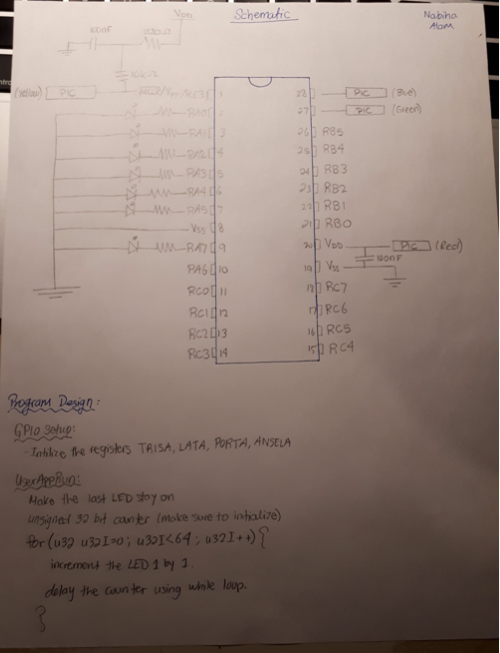 Schematic
Nabiha
Alam
VDD
100nF
(Yellow) PIC
RE3 1
RA0 2
RA1 3
RA2 4
RA3 5
RA4 6
RA5 7
Vss 8
RA7 9
RA6 10
RC0 11
RC1 12
RC2 13
RC3 14
28 PIC (Blue)
27 PIC (Green)
26 RB5
25 RB4
24 RB3
23 RB2
22 RB1
21 RB0
20 VDD PIC (Red)
100nF
19 Vss
18 RC7
17 RC6
16 RC5
15 RC4
Program Design:
GPIO Setup:
- Initilize the registers TRISA, LATA, PORTA, ANSELA
UserAppRun:
Make the last LED stay on
unsigned 32 bit counter (make sure to initialize)
for (u32 u32I=0; u32I<64; u32I++) {
increment the LED 1 by 1.
delay the counter using while loop.
}